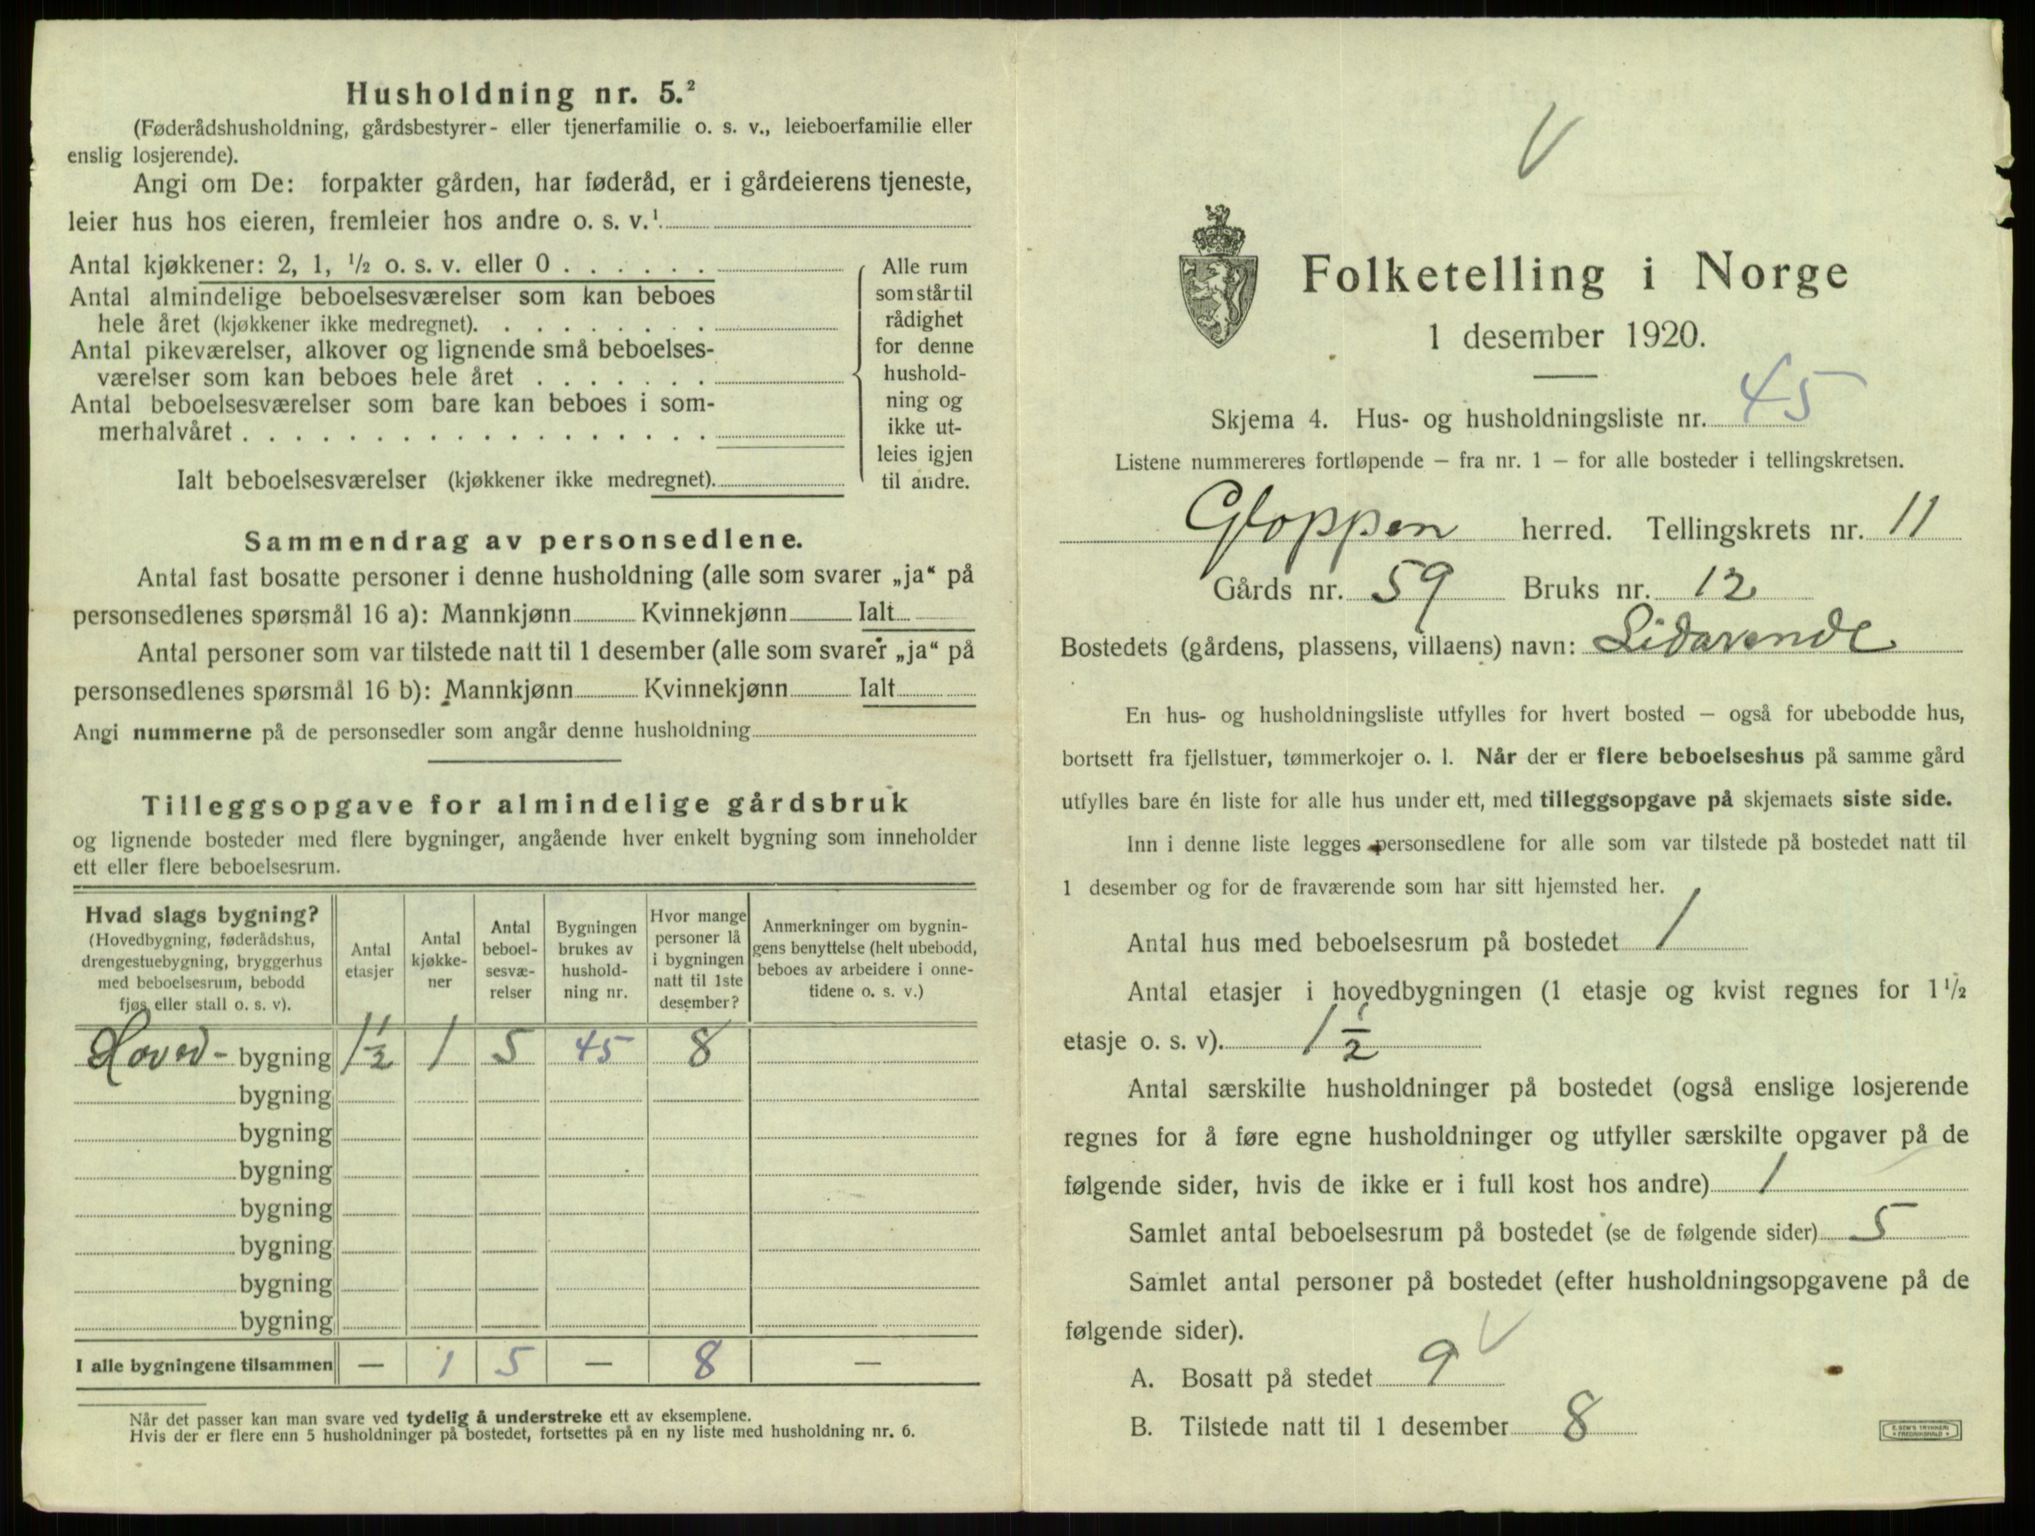 Husholdning nr. 5.²
(Føderådshusholdning, gårdsbestyrer- eller tjenerfamilie o. s. v., leieboerfamilie eller
enslig losjerende).
Angi om De: forpakter gården, har føderåd, er i gårdeierens tjeneste,
leier hus hos eieren, fremleier hos andre o. s. v.¹
Antal kjøkkener: 2, 1, ½ o. s. v. eller 0
Antal almindelige beboelsesværelser som kan beboes
hele året (kjøkkener ikke medregnet).
Antal pikeværelser, alkover og lignende små beboelses-
værelser som kan beboes hele året
Antal beboelsesværelser som bare kan beboes i som-
merhalvåret
Ialt beboelsesværelser (kjøkkener ikke medregnet).
Alle rum
som står til
rådighet
for denne
hushold-
ning og
ikke ut-
leies igjen
til andre.
Sammendrag av personsedlene.
Antal fast bosatte personer i denne husholdning (alle som svarer „ja“ på
personsedlenes spørsmål 16 a): Mannkjønn Kvinnekjønn Ialt
Antal personer som var tilstede natt til 1 desember (alle som svarer „ja“ på
personsedlenes spørsmål 16 b): Mannkjønn Kvinnekjønn Ialt
Angi nummerne på de personsedler som angår denne husholdning
Tilleggsopgave for almindelige gårdsbruk
og lignende bosteder med flere bygninger, angående hver enkelt bygning som inneholder
ett eller flere beboelsesrum.
Hvad slags bygning?
(Hovedbygning, føderådshus,
drengestuebygning, bryggerhus
med beboelsesrum, bebodd
fjøs eller stall o. s. v).
Antal
etasjer
Antal
kjøkke-
ner
Antal
beboel-
sesvæ-
relser
Bygningen
brukes av
hushold-
ning nr.
Hvor mange
personer lå
i bygningen
natt til 1ste
desember?
Anmerkninger om bygnin-
gens benyttelse (helt ubebodd,
beboes av arbeidere i onne-
tidene o. s. v.)
Hoved- bygning 1½ 1 5 45 8
bygning
bygning
bygning
bygning
bygning
bygning
bygning
I alle bygningene tilsammen — 1 5 — 8 —
Når det passer kan man svare ved tydelig å understreke ett av eksemplene.
Hvis der er flere enn 5 husholdninger på bostedet, fortsettes på en ny liste med husholdning nr. 6.
V
Folketelling i Norge
1 desember 1920.
Skjema 4. Hus- og husholdningsliste nr. 45
Listene nummereres fortløpende – fra nr. 1 – for alle bosteder i tellingskretsen.
Gloppen herred. Tellingskrets nr. 11
Gårds nr. 59 Bruks nr. 12
Bostedets (gårdens, plassens, villaens) navn: Lidarende
En hus- og husholdningsliste utfylles for hvert bosted – også for ubebodde hus,
bortsett fra fjellstuer, tømmerkojer o. l. Når der er flere beboelseshus på samme gård
utfylles bare én liste for alle hus under ett, med tilleggsopgave på skjemaets siste side.
Inn i denne liste legges personsedlene for alle som var tilstede på bostedet natt til
1 desember og for de fraværende som har sitt hjemsted her.
Antal hus med beboelsesrum på bostedet 1
Antal etasjer i hovedbygningen (1 etasje og kvist regnes for 1½
etasje o. s. v). 1½
Antal særskilte husholdninger på bostedet (også enslige losjerende
regnes for å føre egne husholdninger og utfyller særskilte opgaver på de
følgende sider, hvis de ikke er i full kost hos andre) 1
Samlet antal beboelsesrum på bostedet (se de følgende sider) 5
Samlet antal personer på bostedet (efter husholdningsopgavene på de
følgende sider).
A. Bosatt på stedet 9
B. Tilstede natt til 1 desember 8
E. SEM'S TRYKKERI
FREDRIKSHALD